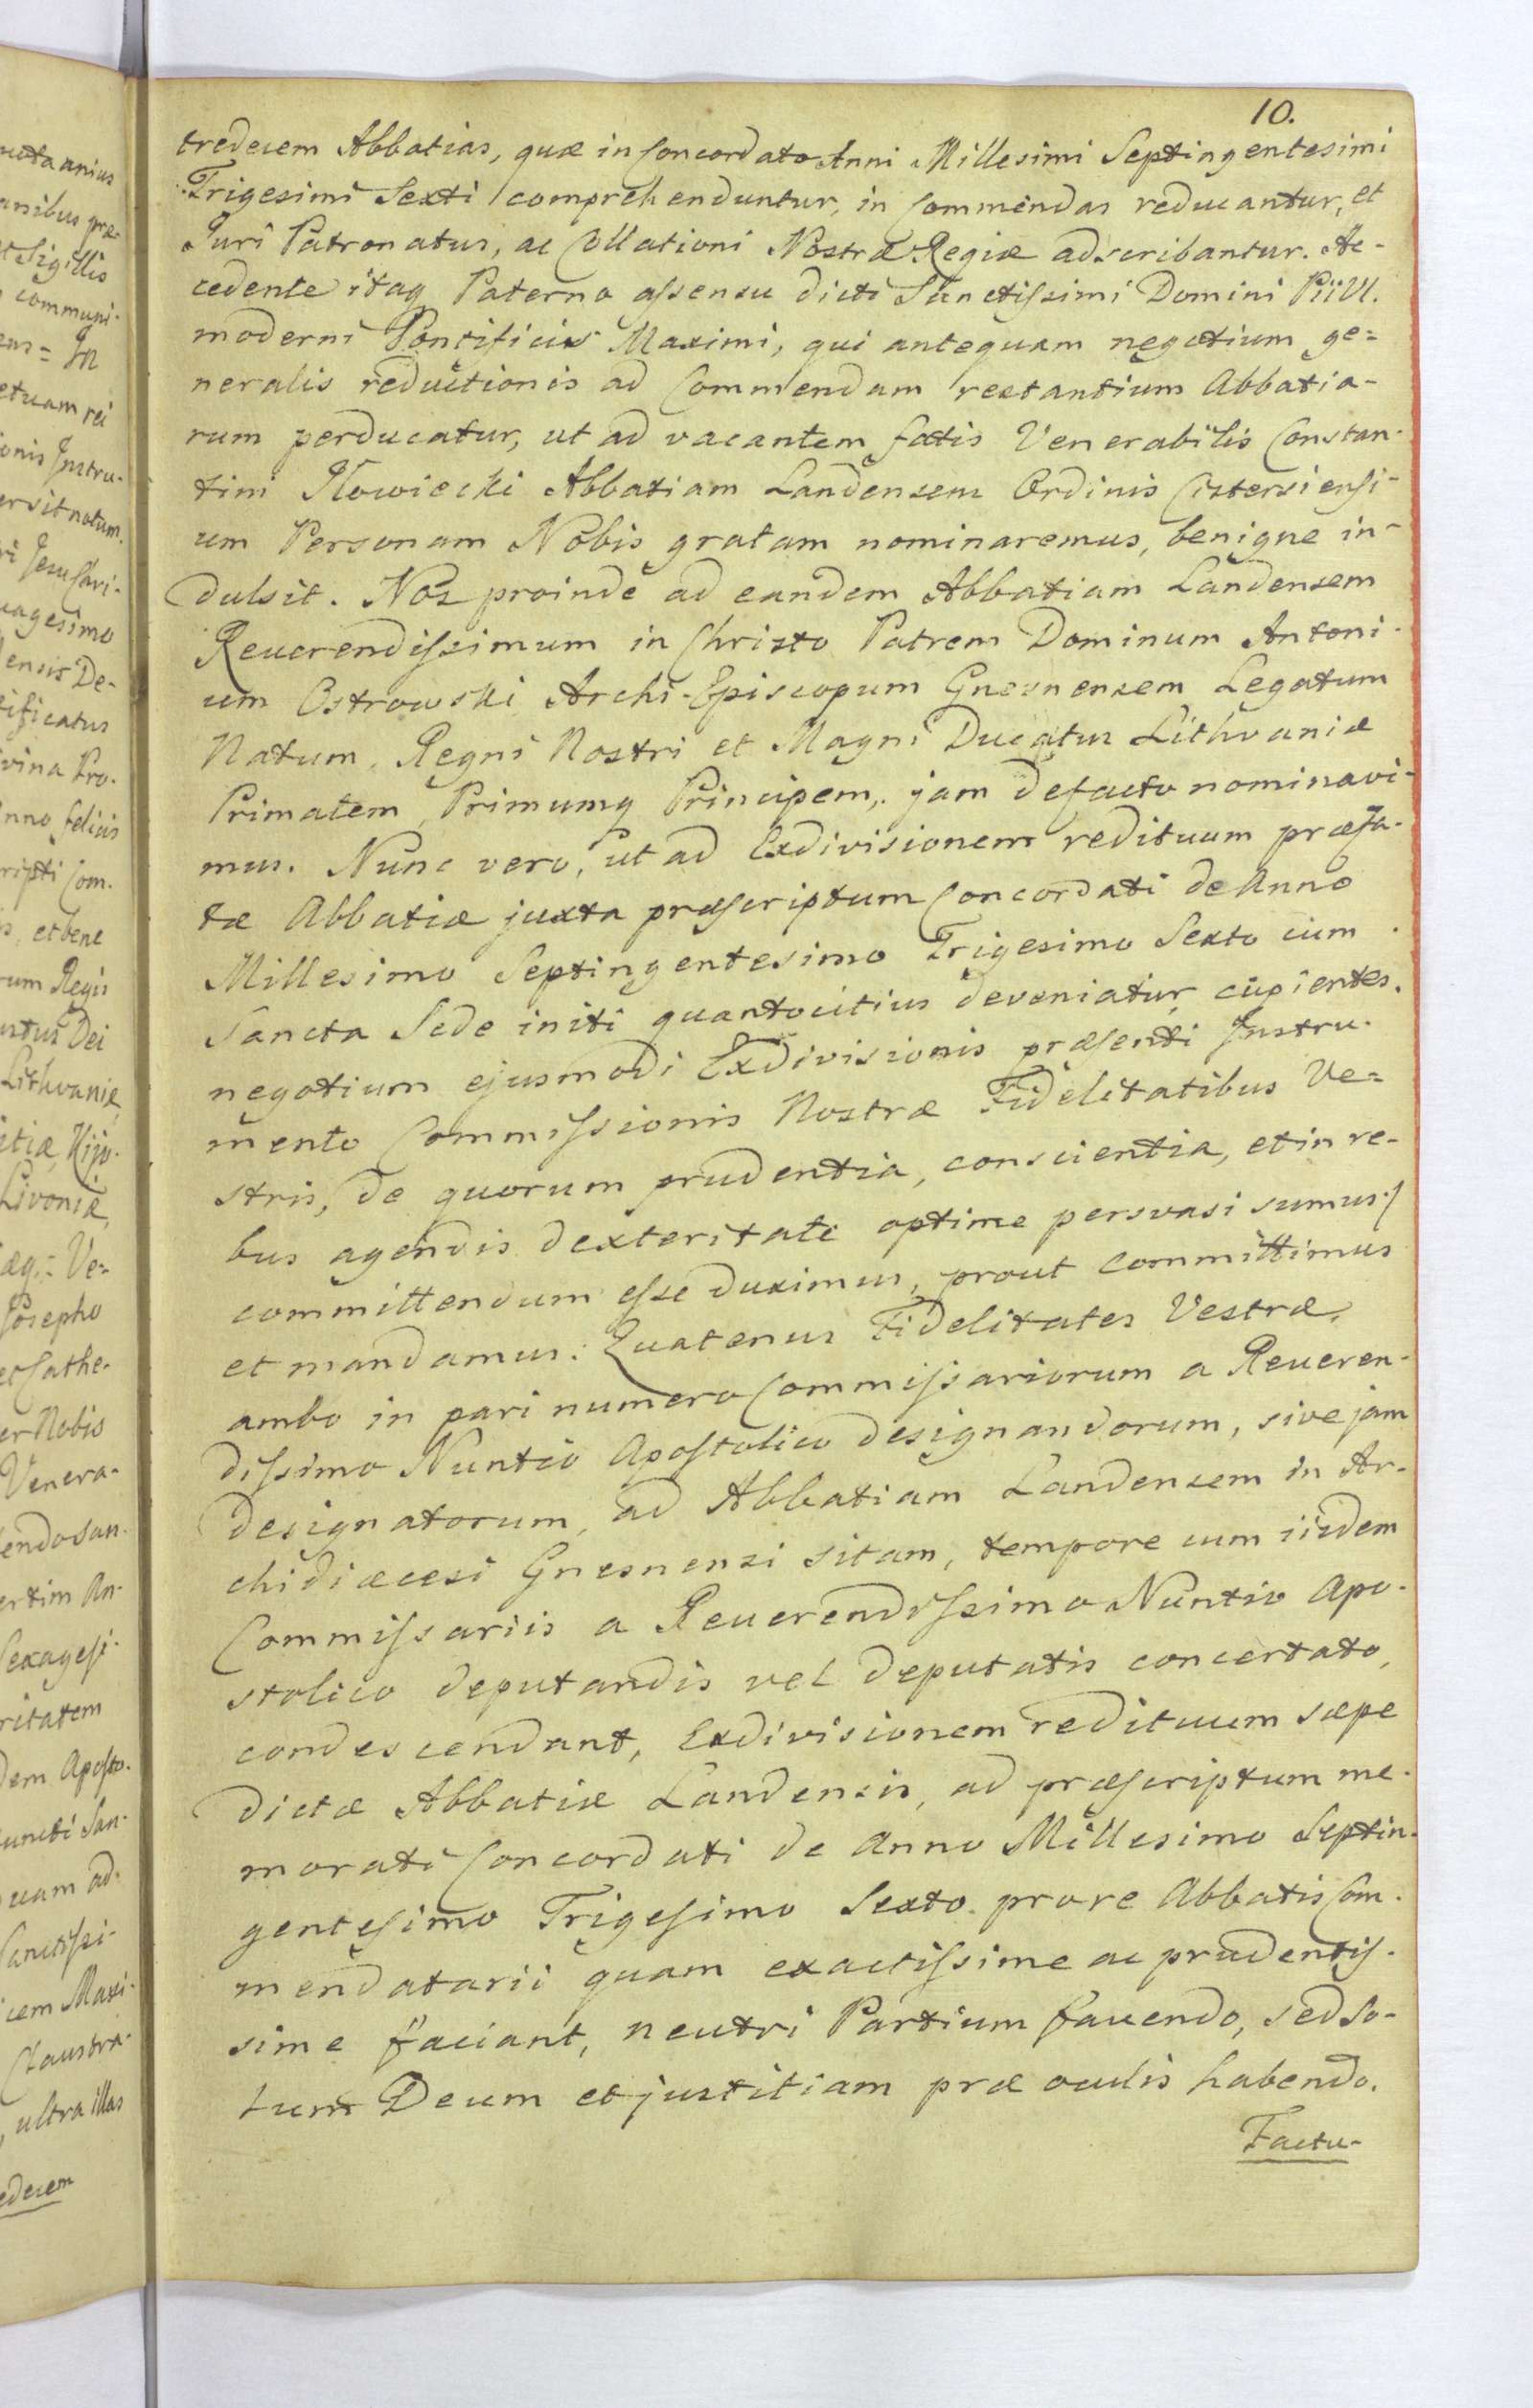 uota anius
anibus præ-
et Sigillis
communi-
In
etuam rei
ionis Instru-
er sit notum.
Jesu Chri-
uagesimo
ensis De-
tificatus
ivina Pro-
Anno felicis
ripti Com-
et bene
rum Regis
ustus Dei
Lithvaniæ,
itiæ, Kijo-
Livoniæ,
Ve-
Josepho
et Cathe-
er Nobis
Venera-
endo San-
ertim An-
Sexagesi-
ritatem
dem Aposto-
uncti San-
uam ad-
Sanctissi-
icem Maxi-
Claustra-
, ultra illas
edecem
10.
tredecem Abbatias, quæ in Concordato Anni Millesimi Septingentesimi
Trigesimi Sexti comprehenduntur, in Commendas reducantur, et
Juri Patronatus, ac Collationi Nostræ Regiæ adscribantur. Ac-
cedente itaq Paterno assensu dicti Sanctissimi Domini Pii VI.
moderni Pontificis Maximi, qui antequam negotium ge=
neralis reductionis ad Commendam restantium Abbatia-
rum perducatur, ut ad vacantem fatis Venerabilis Constan-
tini Kłowiecki Abbatiam Landensem Ordinis Cisterciensi-
um Personam Nobis gratam nominaremus, benigne in-
dulsit. Nos proinde ad eandem Abbatiam Landensem
Reverendissimum in Christo Patrem Dominum Antoni-
um Ostrowski Archi-Episcopum Gnesnensem Legatum
Natum, Regni Nostri et Magni Ducatus Lithvaniæ
Primatem, Primumq Principem, jam defacto nominavi-
mus. Nunc vero, ut ad Exdivisionem redituum præfa-
tæ Abbatiæ juxta præscriptum Concordati de Anno
Millesimo Septingentesimo Trigesimo Sexto cum
Sancta Sede initi quantocitius deveniatur, cupientes.
negotium ejusmodi Exdivisionis præsenti Instru-
mento Commissionis Nostræ Fidelitatibus Ve=
stris, de quorum prudentia, conscientia, et in re-
bus agendis dexteritate optime persvasi sumus,/
committendum esse duximus, prout committimus
et mandamus: Quatenus Fidelitates Vestræ,
ambo in pari numero Commissariorum a Reveren-
dissimo Nuntio Apostolico designandorum, sive jam
designatorum, ad Abbatiam Landensem in Ar-
chidiæcesi Gnesnensi sitam, tempore cum iisdem
Commissariis a Reverendissimo Nuntio Apo-
stolico deputandis vel deputatis concertato,
condescendant, Exdivisionem redituum sæpe
dictæ Abbatiæ Landensis, ad præscriptum me-
morati Concordati de Anno Millesimo Septin-
gentesimo Trigesimo Sexto pro re Abbatis Com-
mendatarii quam exactissime ac prudentis-
sime faciant, neutri Partium favendo, sed so-
lum Deum et justitiam præ oculis habendo.
Factu-